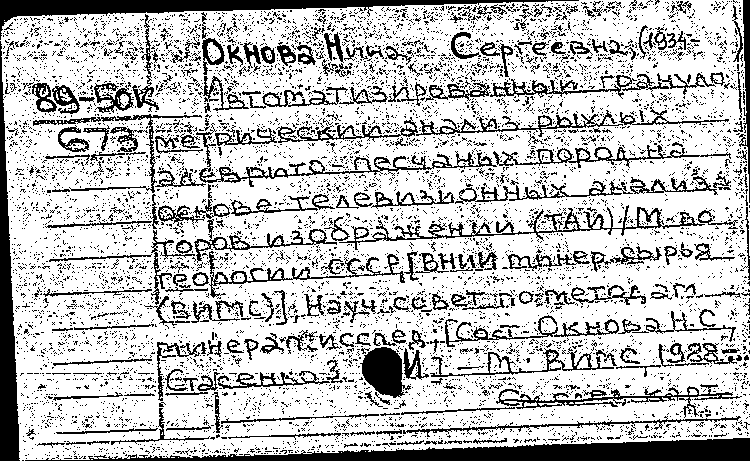 Окнова Нина Сергеевна, (1934-
89-50к Автоматизированный грануло
673 метрический анализ рыхлых
алеврито-песчаных пород на
основе телевизионных анализа
торов изображений (ТАИ)/М-во
геологии СССР,[ВНИИ минер. сырья
(ВИМС)], Науч. совет по методам
минерал. исслед.; [Сост. Окнова Н.С.
Стасенко З. И.] – М.: ВИМС, 1988.–
См. след. карт.